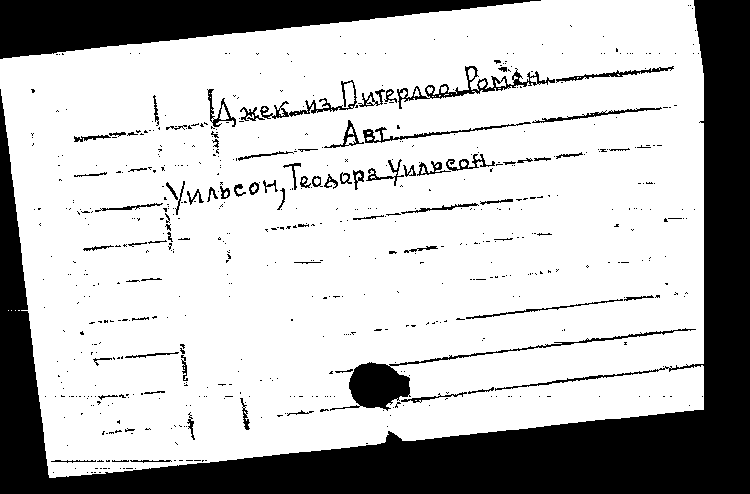 Джек из Питерлоо. Роман.
Авт.:
Уильсон, Теодора Уильсон.